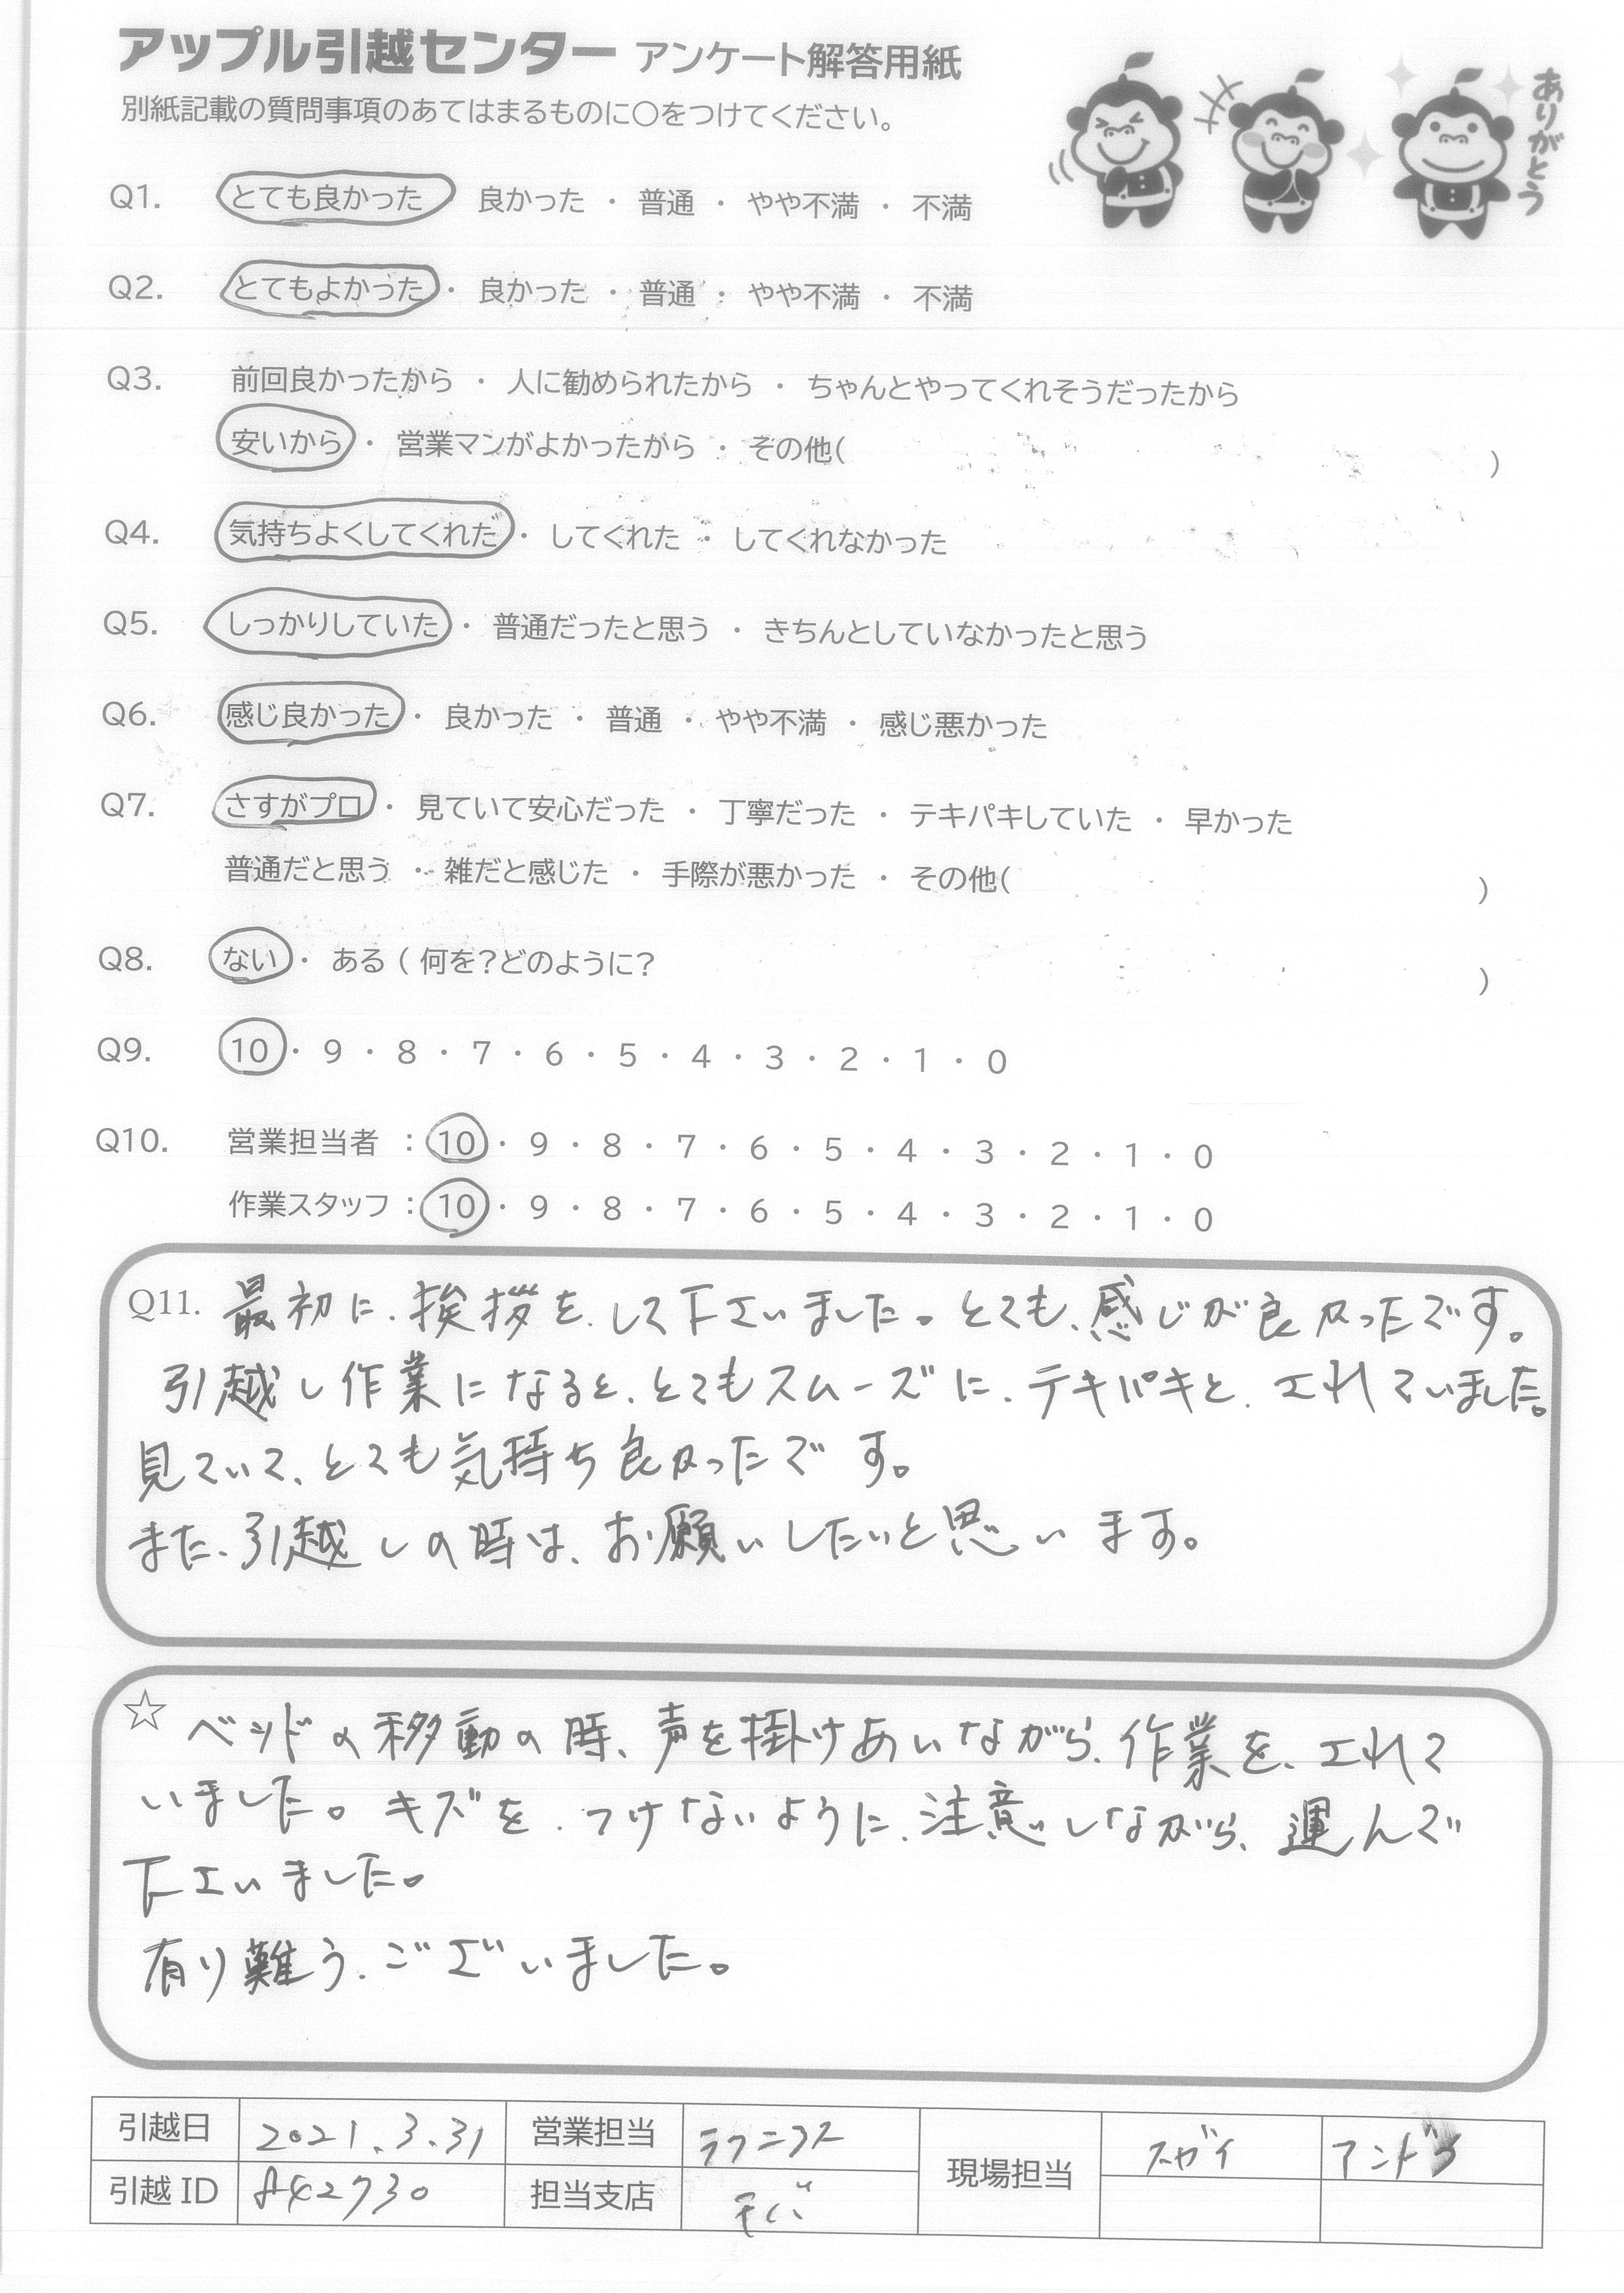 アップル引越センター アンケート解答用紙
ありがとう
別紙記載の質問事項のあてはまるものに○をつけてください。
Q1. とても良かった 良かった ・ 普通 ・ やや不満 ・ 不満
Q2. とてもよかった ・ 良かった ・ 普通 ・ やや不満 ・ 不満
Q3. 前回良かったから ・ 人に勧められたから ・ ちゃんとやってくれそうだったから
安いから ・ 営業マンがよかったから ・ その他( )
Q4. 気持ちよくしてくれた ・ してくれた ・ してくれなかった
Q5. しっかりしていた ・ 普通だったと思う ・ きちんとしていなかったと思う
Q6. 感じ良かった ・ 良かった ・ 普通 ・ やや不満 ・ 感じ悪かった
Q7. さすがプロ ・ 見ていて安心だった ・ 丁寧だった ・ テキパキしていた ・ 早かった
普通だと思う ・ 雑だと感じた ・ 手際が悪かった ・ その他( )
Q8. ない ・ ある ( 何を?どのように? )
Q9. 10 ・ 9 ・ 8 ・ 7 ・ 6 ・ 5 ・ 4 ・ 3 ・ 2 ・ 1 ・ 0
Q10. 営業担当者 : 10 ・ 9 ・ 8 ・ 7 ・ 6 ・ 5 ・ 4 ・ 3 ・ 2 ・ 1 ・ 0
作業スタッフ : 10 ・ 9 ・ 8 ・ 7 ・ 6 ・ 5 ・ 4 ・ 3 ・ 2 ・ 1 ・ 0
Q11. 最初に、挨拶を、して下さいました。とても、感じが良かったです。
引越し作業になると、とてもスムーズに、テキパキと、されていました。
見ていて、とても気持ち良かったです。
また、引越しの時は、お願いしたいと思います。
☆ ベッドの移動の時、声を掛けあいながら、作業を、されて
いました。キズを、つけないように、注意しながら、運んで
下さいました。
有り難う、ございました。
引越日 2021.3.31 営業担当 現場担当 スガイ アンドウ
引越 ID A42730 担当支店 千バ